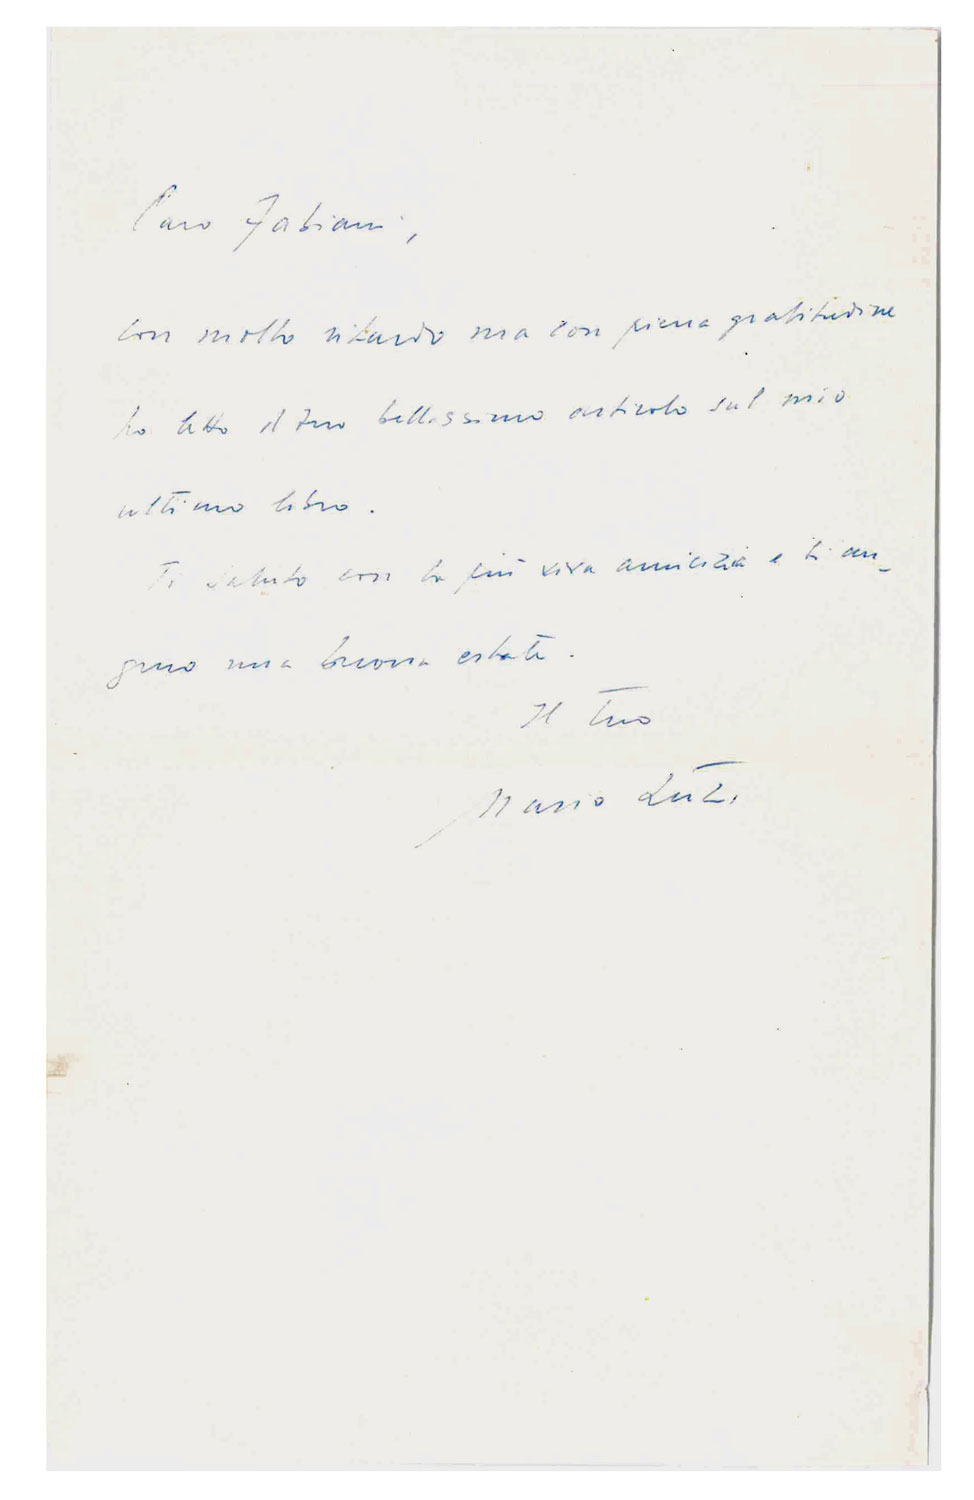 Caro Fabiani,
con molto ritardo ma con piena gratitudine
ho letto il tuo bellissimo articolo sul mio
ultimo libro.
Ti saluto con la più viva amicizia e ti au-
guro una buona estate.
Il tuo
Mario Luzi